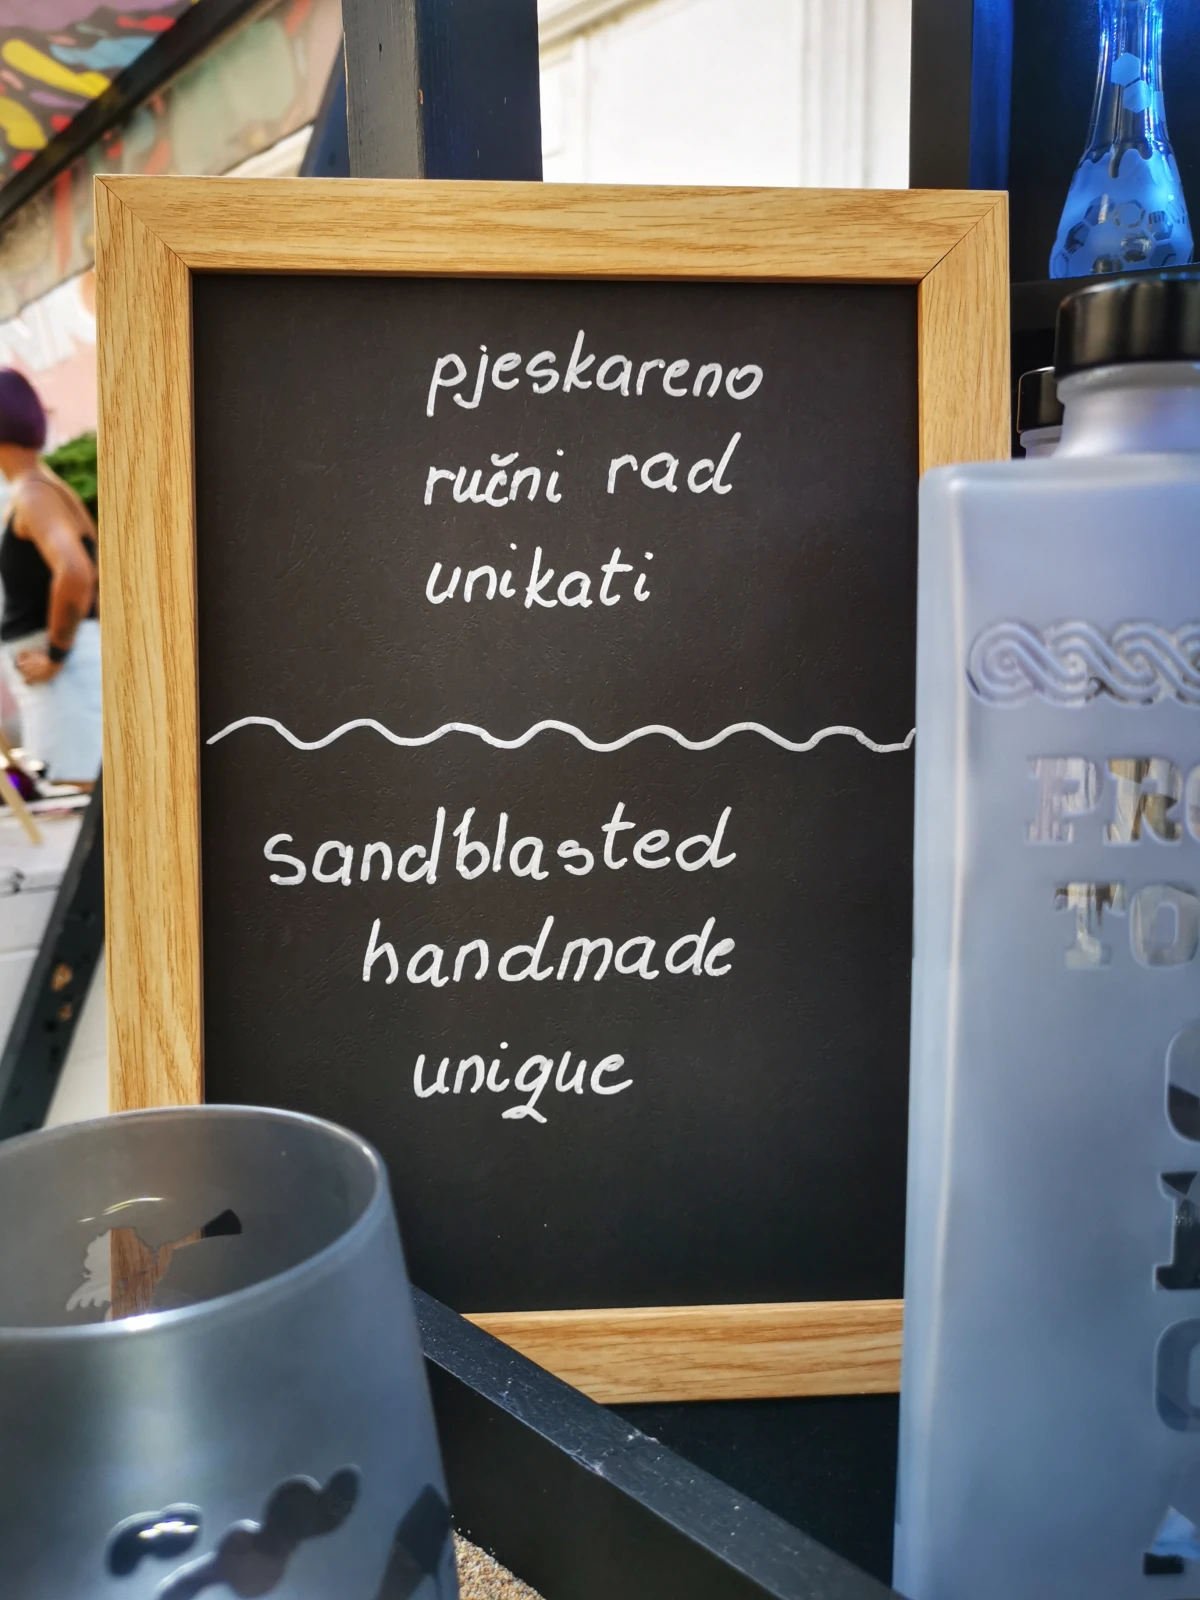 pjeskareno
ručni rad
unikati
sandblasted
handmade
unique